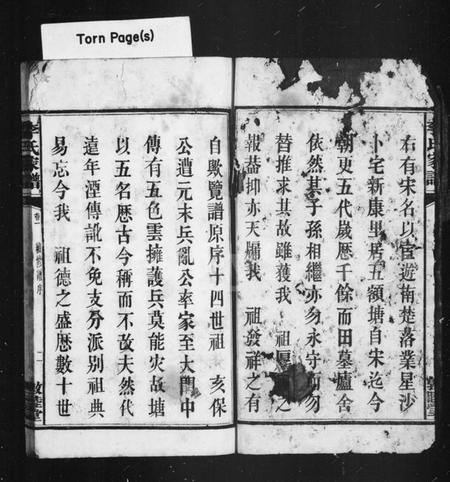 Torn Page(s)
右有宋名以宦遊南楚落業星沙
卜宅新康里居五領塘自宋迄今
朝更五代歲歷千餘而田墓廬舍
依然其子孫相繼亦勿永守而勿
替推求其故雖莪我 祖厚之
報葢抑亦天牖我 祖發祥之有
氏家譜
敦睦堂
自歟覽譜原序十四世祖 亥保
公遭元末兵亂公率家至大門中
傳有五色雲擁護兵莫能灾故塘
以五名歷古今稱而不改夫然代
遠年湮傳訛不免支分派别祖典
易忘今我 祖德之盛歷數十世
李氏家譜
卷一
序
二
敦睦堂